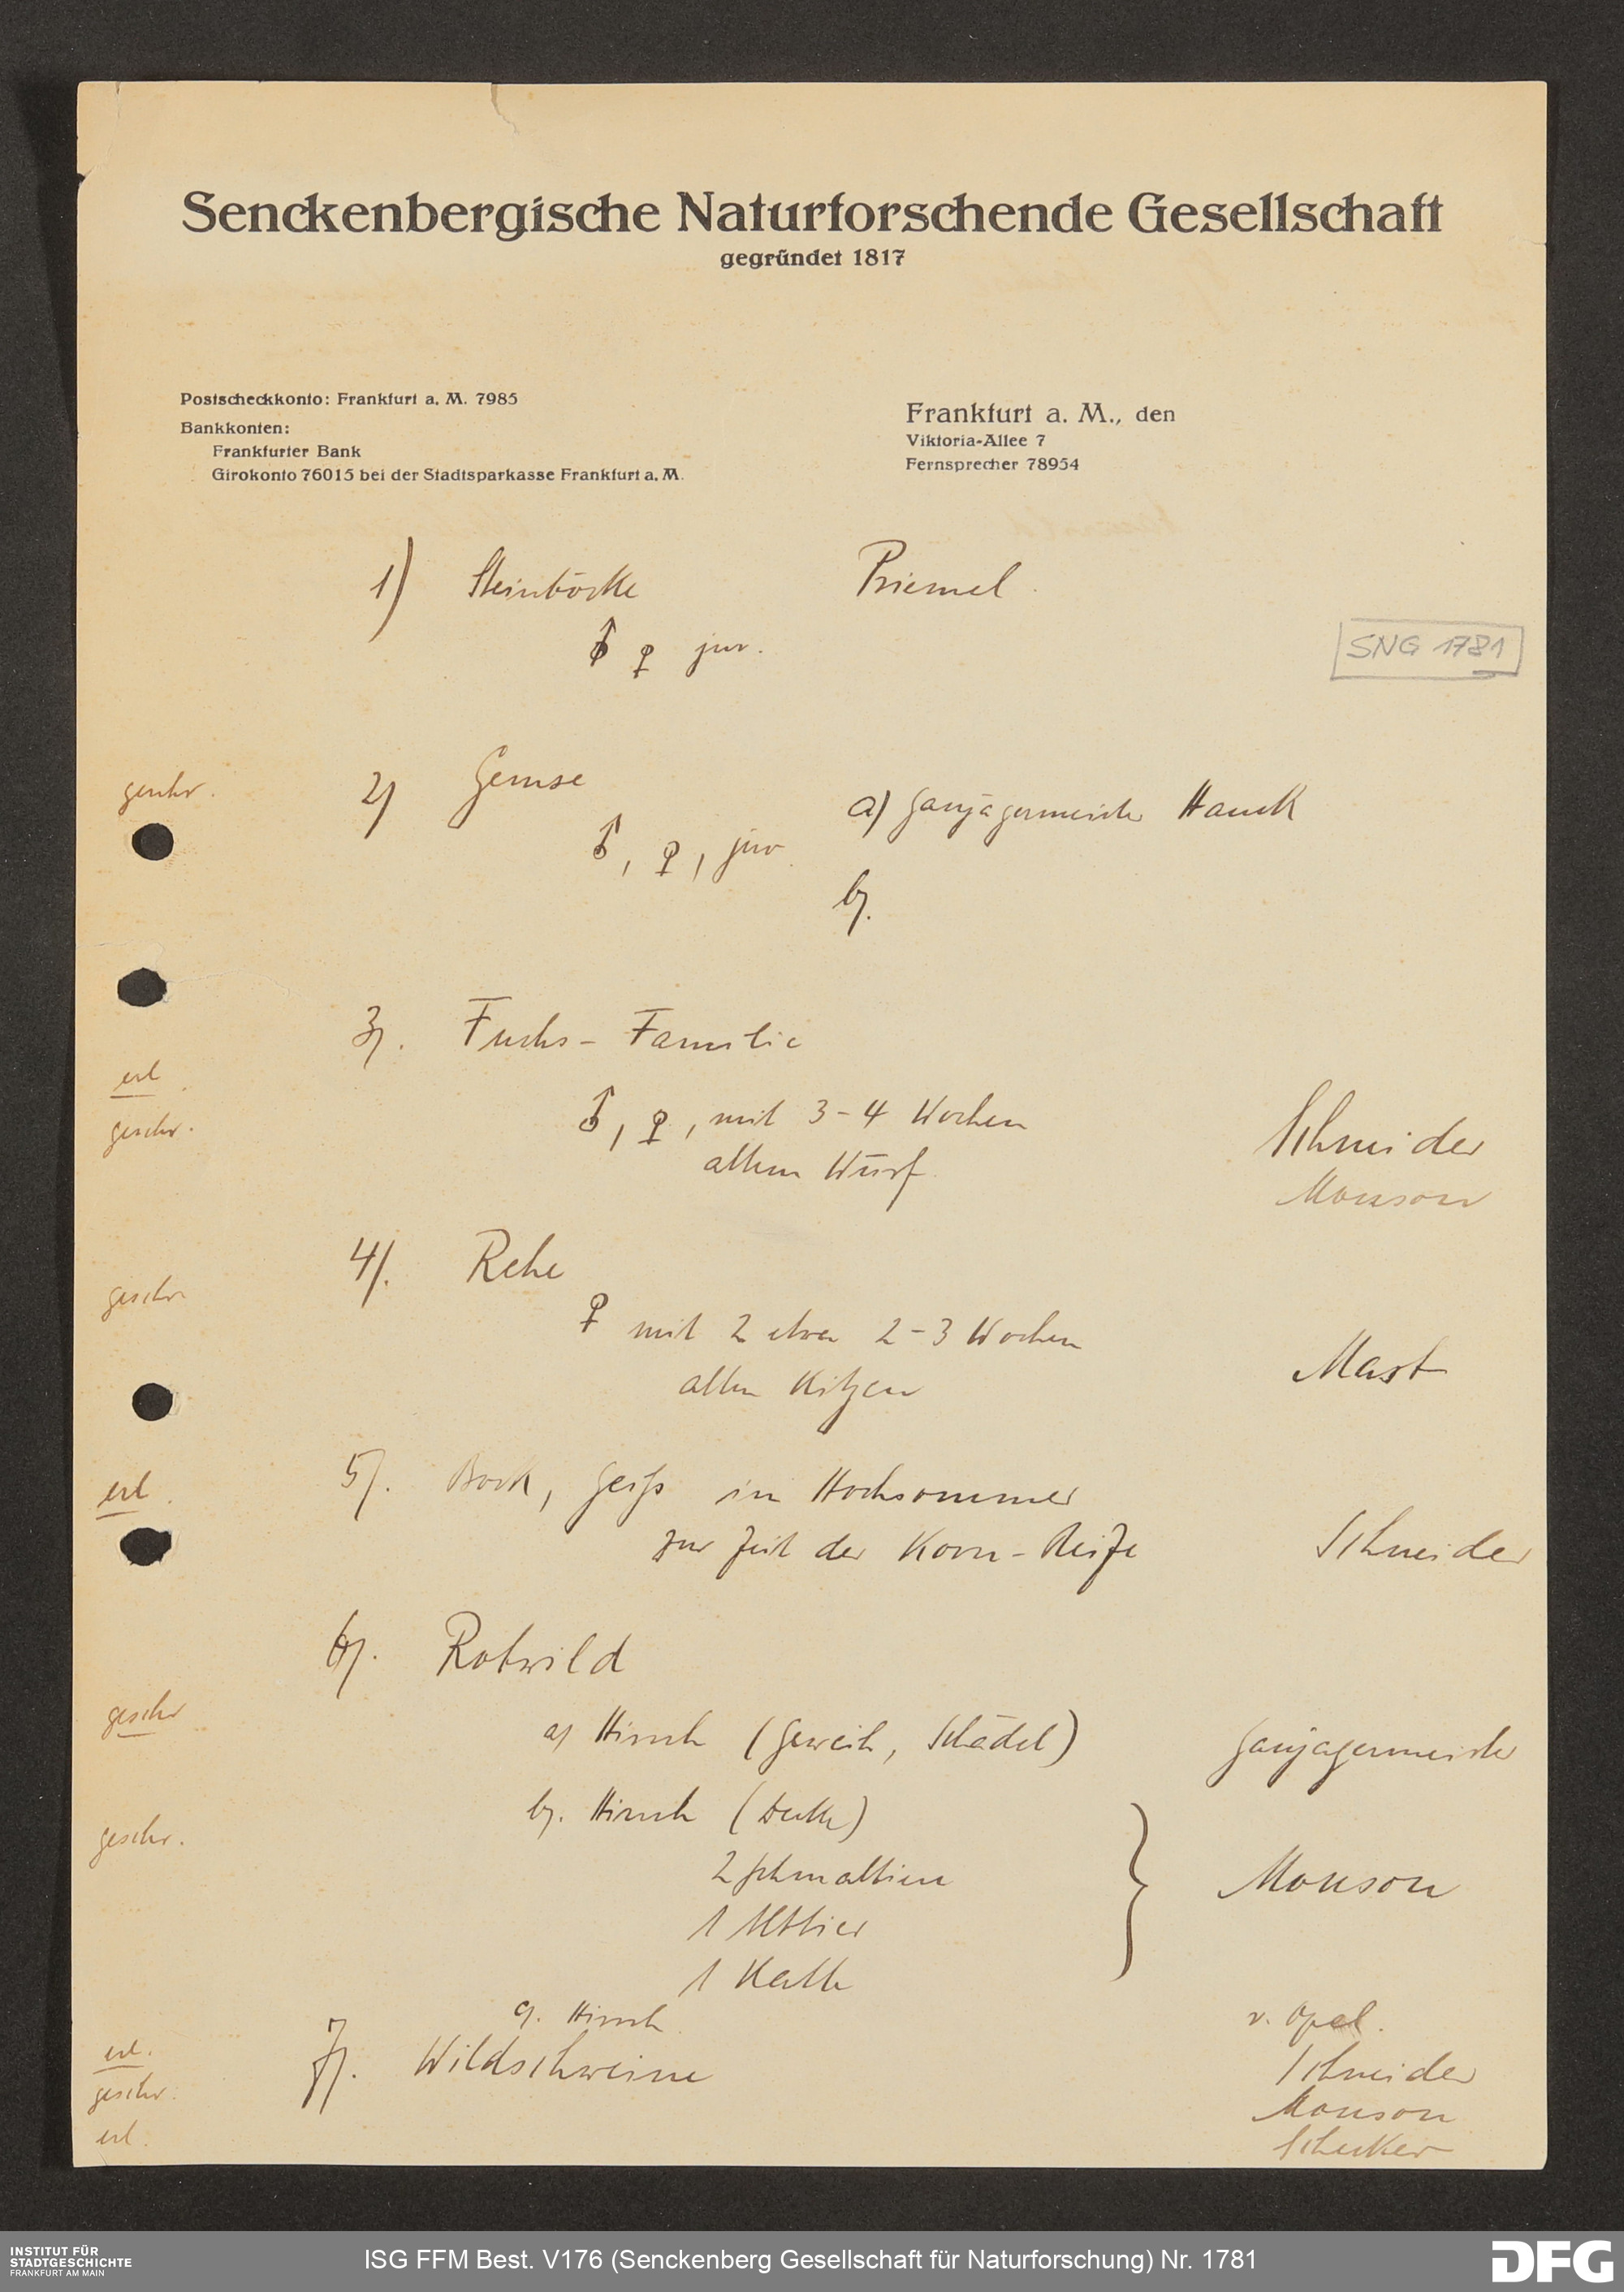 Senckenbergische Naturforschende Gesellschaft
gegründet 1817
Postscheckkonto: Frankfurt a. M. 7985
Bankkonten:
Frankfurter Bank
Girokonto 76015 bei der Stadtsparkasse Frankfurt a. M.
Frankfurt a. M., den
Viktoria-Allee 7
Fernsprecher 78954
1) Steinböcke Priemel
♂ ♀ juv.
SNG 1781
geschr. 2) Gemse a) Gaujägermeister Hauck
♂, ♀, juv
b).
3). Fuchs-Familie
erl.
geschr. ♂, ♀, mit 3-4 Wochen Schneider
altem Wurf. Mouson
4). Rehe
geschr ♀ mit 2 etwa 2-3 Wochen
alten Kitzen Mast
erl. 5). Bock, Geiß im Hochsommer
zur Zeit der Korn-Reife Schneider
6). Rotwild
geschr a) Hirsch (Geweih, Schädel) Gaujägermeister
geschr. b). Hirsch (Decke)
2 Schmaltiere
} Mouson
1 Alttier
1 Kalb
c). Hirsch v. Opel.
erl. 7). Wildschweine Schneider
geschr. Mouson
erl.
INSTITUT FÜR
STADTGESCHICHTE
FRANKFURT AM MAIN
ISG FFM Best. V176 (Senckenberg Gesellschaft für Naturforschung) Nr. 1781
DFG